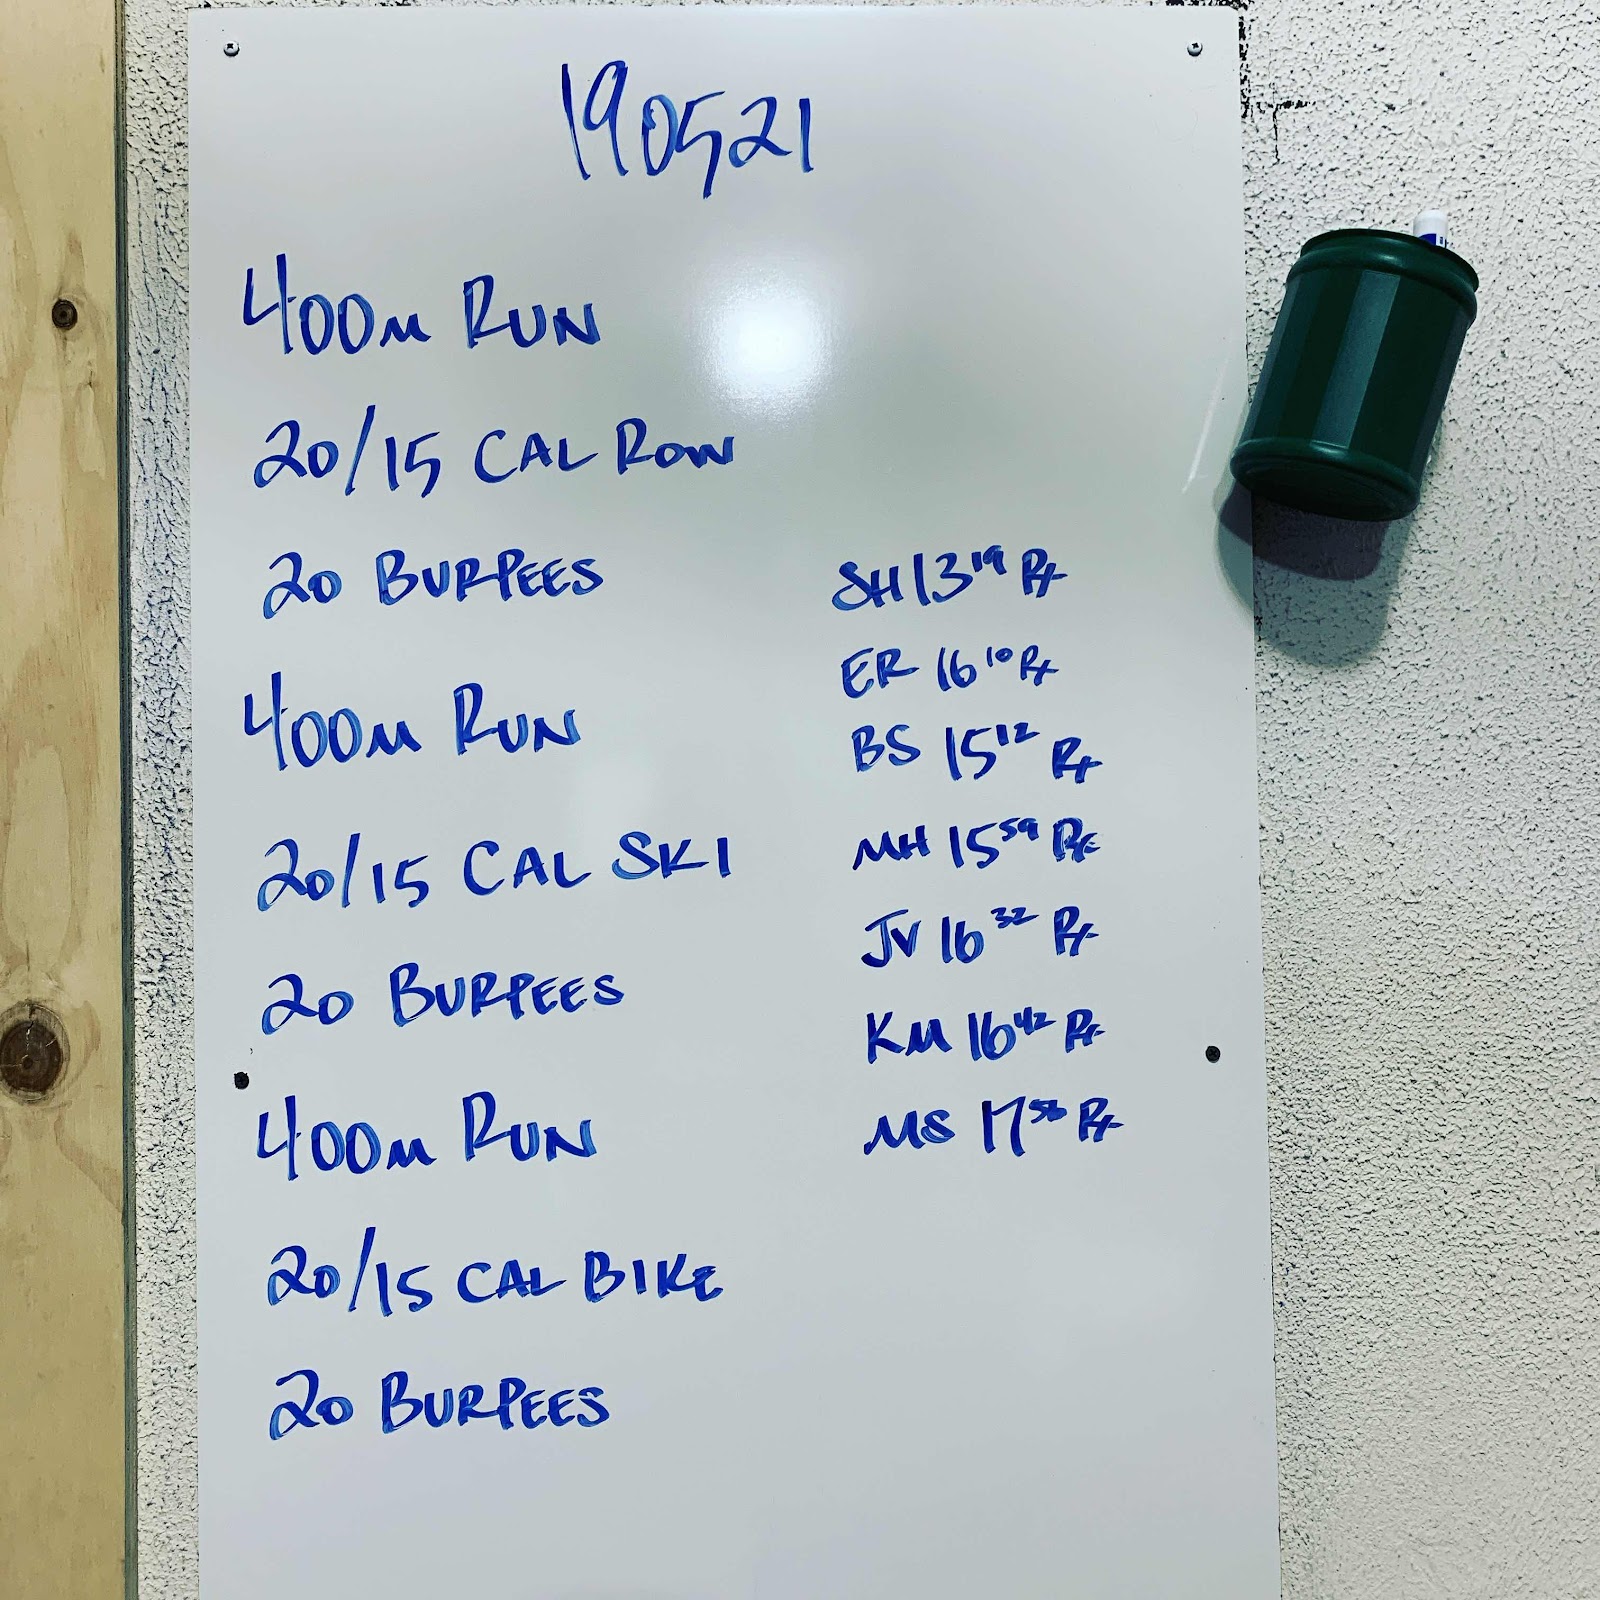 190521
400m RUN
20/15 CAL ROW
20 BURPEES
400m RUN
20/15 CAL SKI
20 BURPEES
400m RUN
20/15 CAL BIKE
20 BURPEES
SH 13 19 Rx
ER 16 10 Rx
BS 15 12 Rx
MH 15 59 Rx
JV 16 32 Rx
KM 16 42 Rx
MS 17 Rx